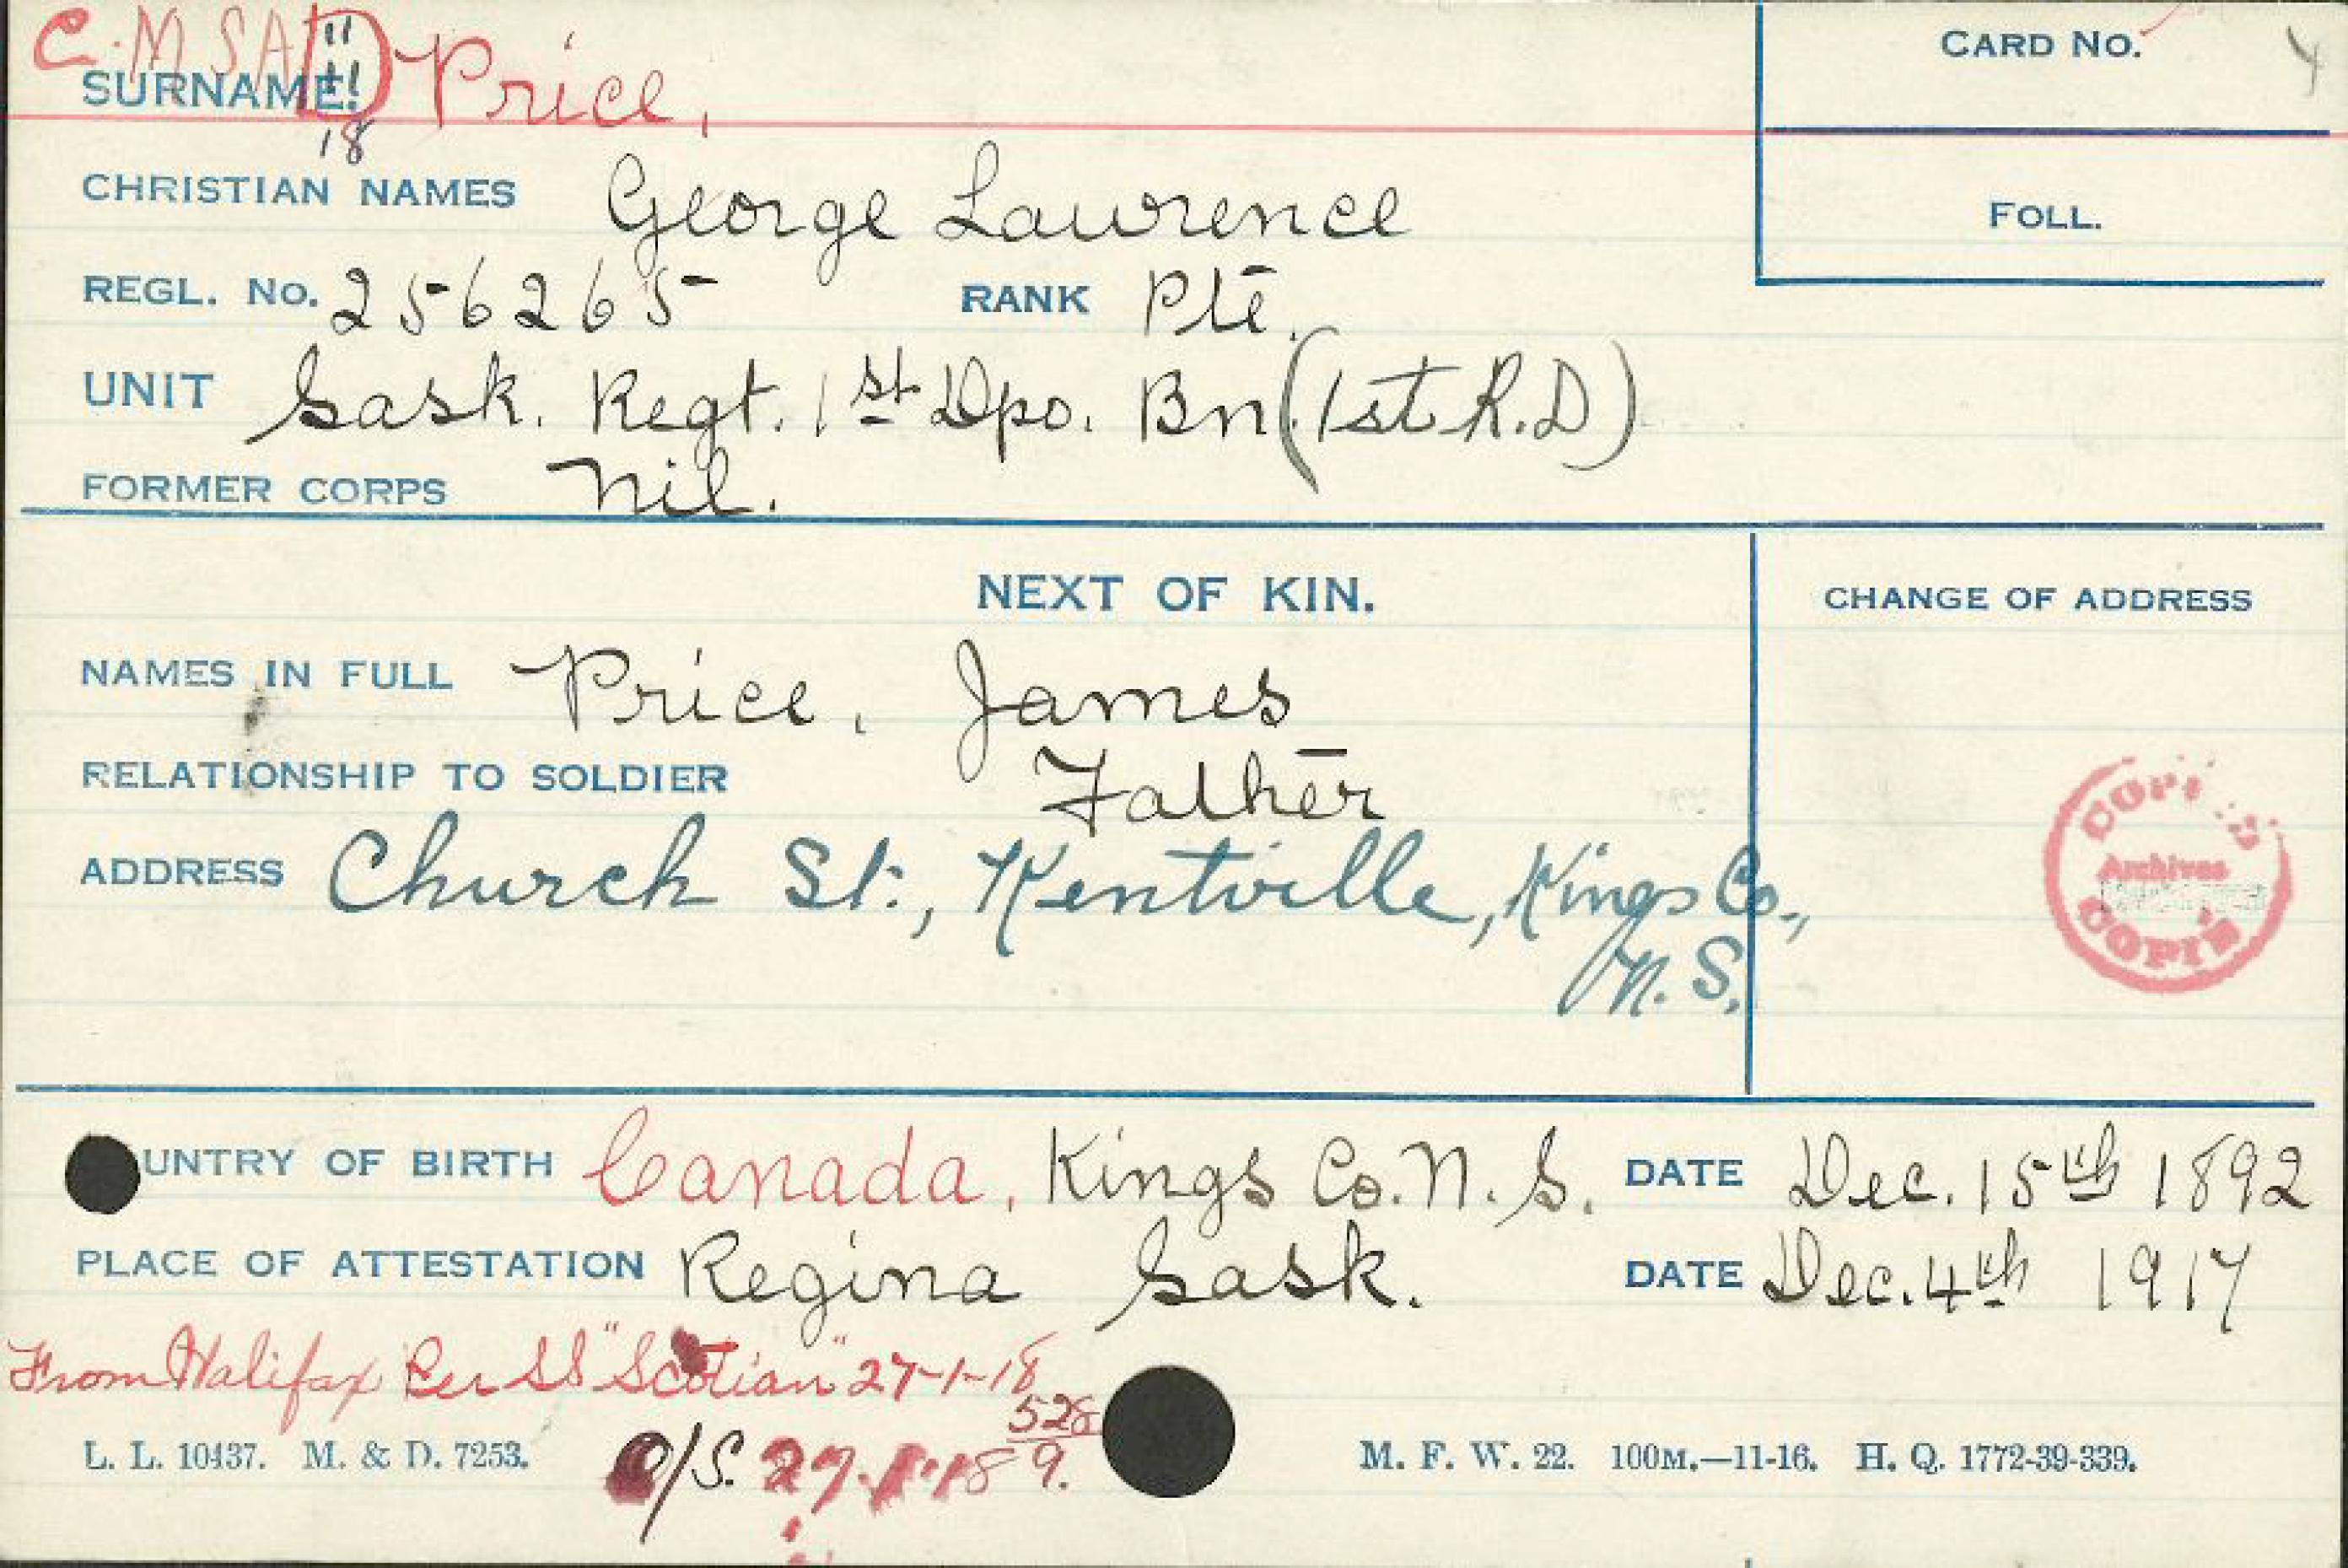 C.M.S.A. D 11
CARD No.
SURNAME. 11 Price,
18
CHRISTIAN NAMES George Lawrence
FOLL.
REGL. No. 256265 RANK Pte.
UNIT Sask. Regt. 1st Dpo. Bn. (1st R.D)
FORMER CORPS Nil.
NEXT OF KIN.
CHANGE OF ADDRESS
NAMES IN FULL Price, James
RELATIONSHIP TO SOLDIER Father
ADDRESS Church St., Kentville, Kings Co.,
N.S.
Archives
COPIE
UNTRY OF BIRTH Canada, Kings Co. N.S. DATE Dec. 15th 1892
PLACE OF ATTESTATION Regina Sask. DATE Dec. 4th 1917
From Halifax Per SS "Scotian" 27-1-18
528
L. L. 10437. M. & D. 7253. O/S. 27.1.18 9.
M. F. W. 22. 100M.—11-16. H. Q. 1772-39-339.